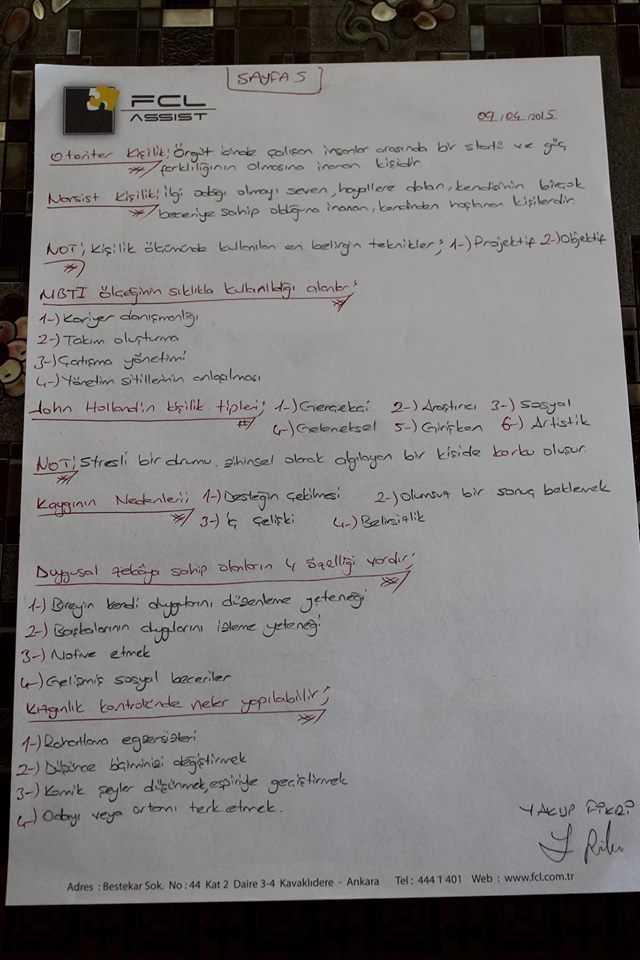 SAYFA 5
FCL
ASSIST
09/04/2015
Otoriter Kişilik: Örgüt içinde çalışan insanlar arasında bir statü ve güç
farklılığının olmasına inanan kişidir.
Narsist Kişilik: ilgi odağı olmayı seven, hayallere dalan, kendisinin birçok
beceriye sahip olduğuna inanan, kendinden hoşlanan kişilerdir.
NOT; Kişilik ölçümünde kullanılan en belirgin teknikler; 1-) Projektif 2-) Objektif
MBTI ölçeğinin sıklıkla kullanıldığı alanlar;
1-) Kariyer danışmanlığı
2-) Takım oluşturma
3-) Çatışma yönetimi
4-) Yönetim sitillerinin anlaşılması
John Holland'ın Kişilik tipleri; 1-) Gerçekçi 2-) Araştırıcı 3-) Sosyal
4-) Geleneksel 5-) Girişken 6-) Artistik
NOT; Stresli bir drumu, zihinsel olarak algılayan bir kişide korku oluşur.
Kaygının Nedenleri; 1-) Desteğin çekilmesi 2-) Olumsuz bir sonuç beklemek
3-) İç çelişki 4-) Belirsizlik
Duygusal zekâya sahip olanların 4 özelliği vardır;
1-) Bireyin kendi duygularını düzenleme yeteneği
2-) Başkalarının duygularını izleme yeteneği
3-) Motive etmek
4-) Gelişmiş sosyal beceriler
Kızgınlık kontrolünde neler yapılabilir;
1-) Rahatlama egzersizleri
2-) Düşünce biçiminizi değiştirmek
3-) Komik şeyler düşünmek, espiriyle geçiştirmek
4-) Odayı veya ortamı terk etmek.
YAKUP FİKRİ
Adres : Bestekar Sok. No : 44 Kat 2 Daire 3-4 Kavaklıdere - Ankara Tel : 444 1 401 Web : www.fcl.com.tr